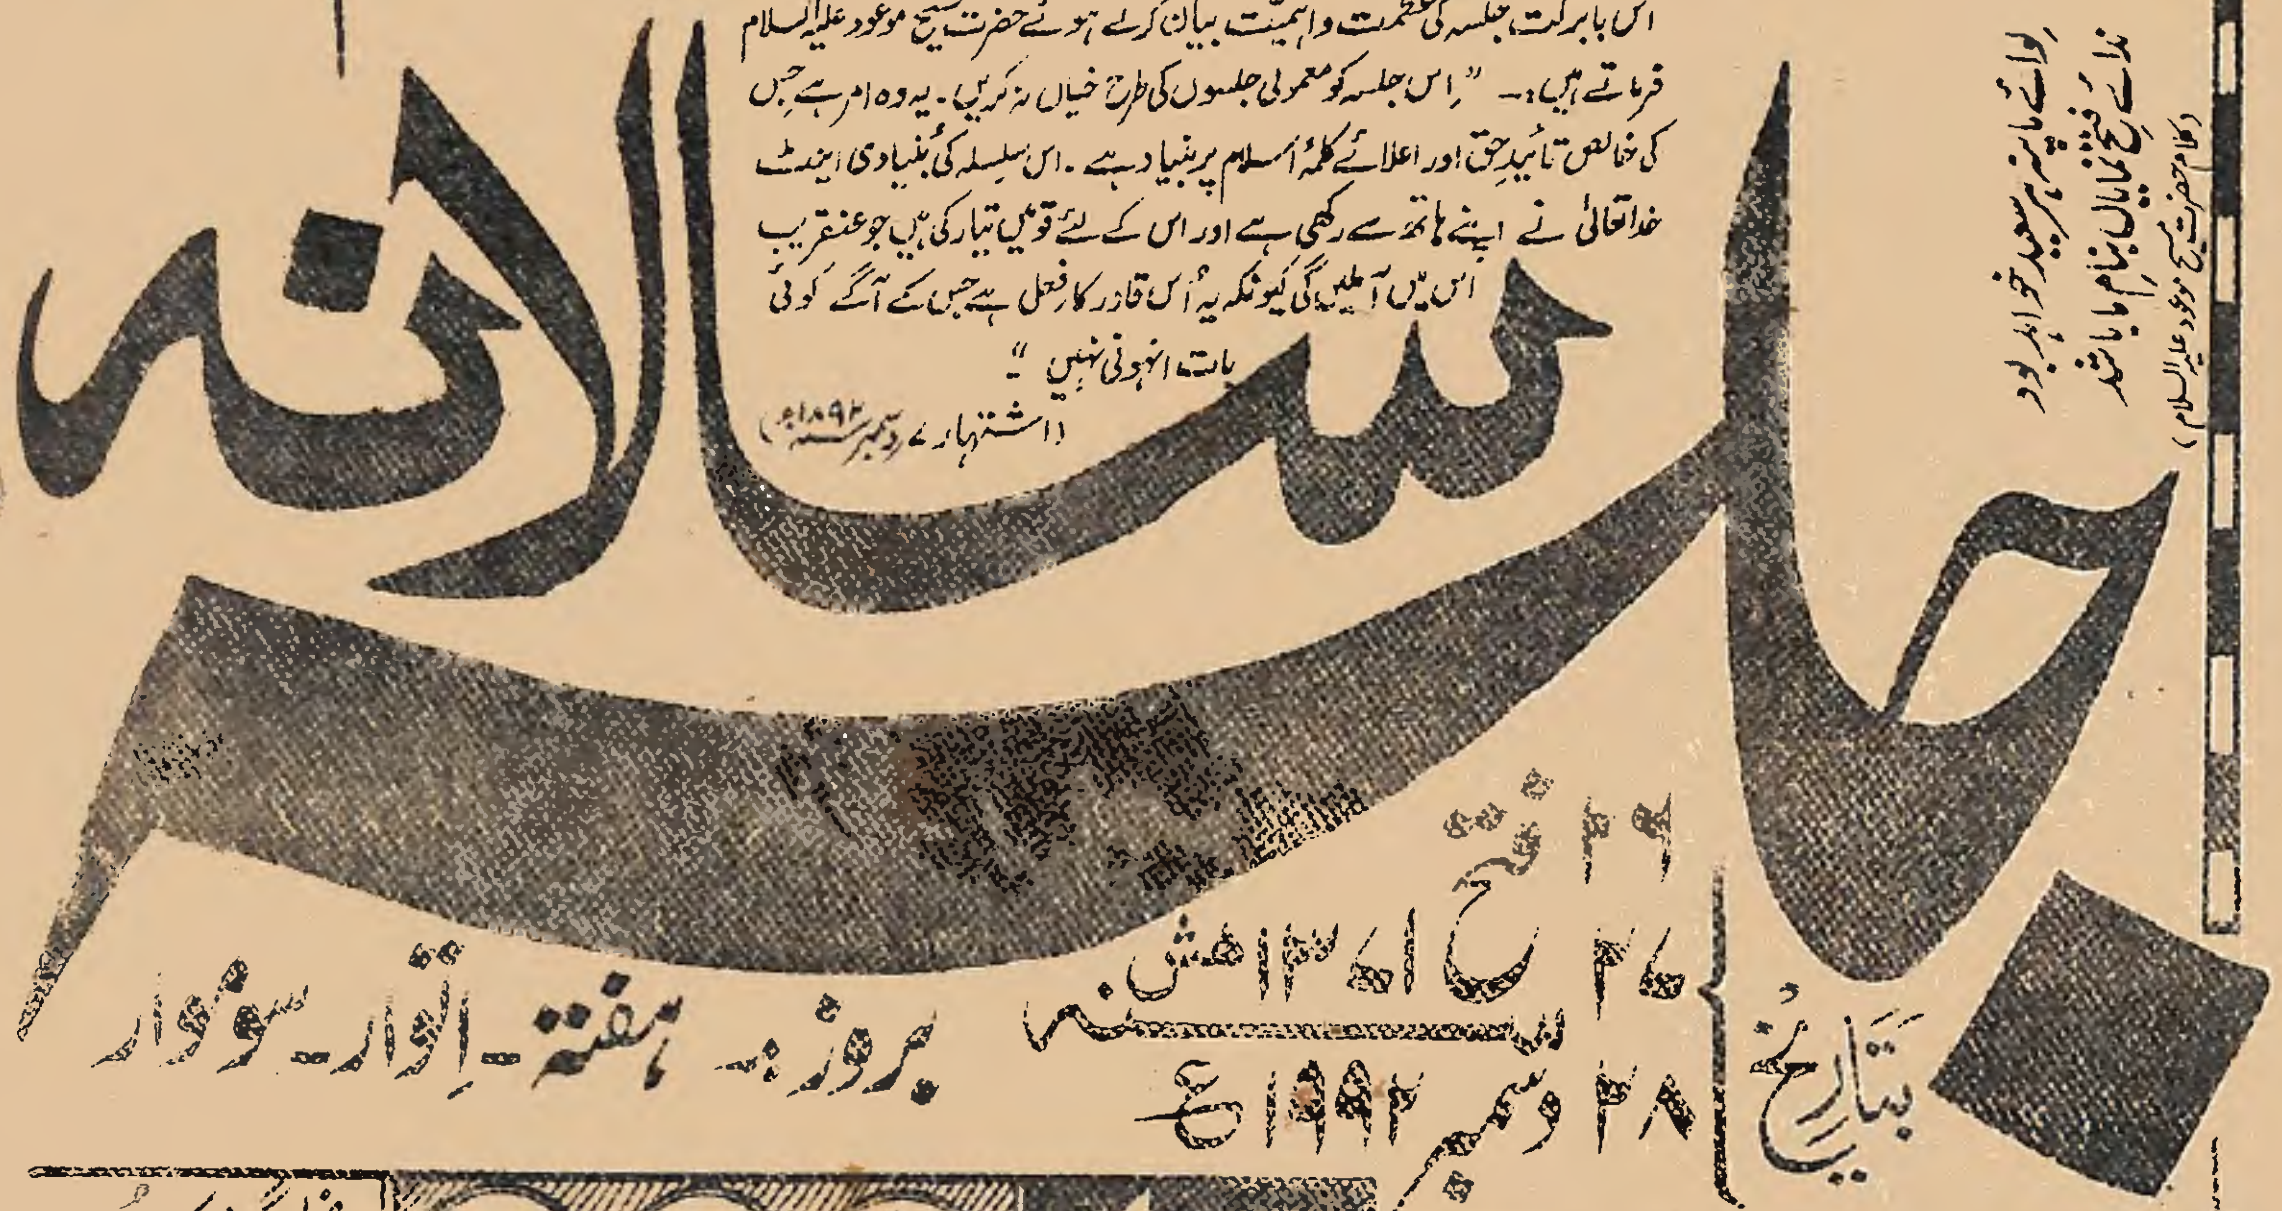 اس بابرکت جلسہ کی عظمت و اہمیّت بیان کرتے ہوئے حضرت مسیح موعود علیہ السلام
فرماتے ہیں:۔ "اِس جلسہ کو معمولی جلسوں کی طرح خیال نہ کریں۔ یہ وہ امر ہے جس
کی خالص تائیدِ حق اور اعلائے کلمۂ اسلام پر بنیاد ہے۔ اس سِلسِلہ کی بُنیادی اینٹ
خدا تعالیٰ نے اپنے ہاتھ سے رکھی ہے اور اس کے لئے قومیں تیار کی ہیں جو عنقریب
اس میں آ ملیں گی کیونکہ یہ اُس قادر کا فِعل ہے جس کے آگے کوئی
بات انہونی نہیں"
(اشتہار ۷ دسمبر ۱۸۹۲ء)
لِوائے ما پنہ ہر سعید خواہد بود
ندائے فتحِ نمایاں بنامِ ما باشد
(کلام حضرت مسیح موعود علیہ السلام)
جلسہ سالانہ
بتاریخ
۲۶
۲۷
۲۸
فتح ۱۳۷۱ ہش
دسمبر ۱۹۹۲ ع
بروز:۔ ہفتہ ۔ اِتوار ۔ سوموار